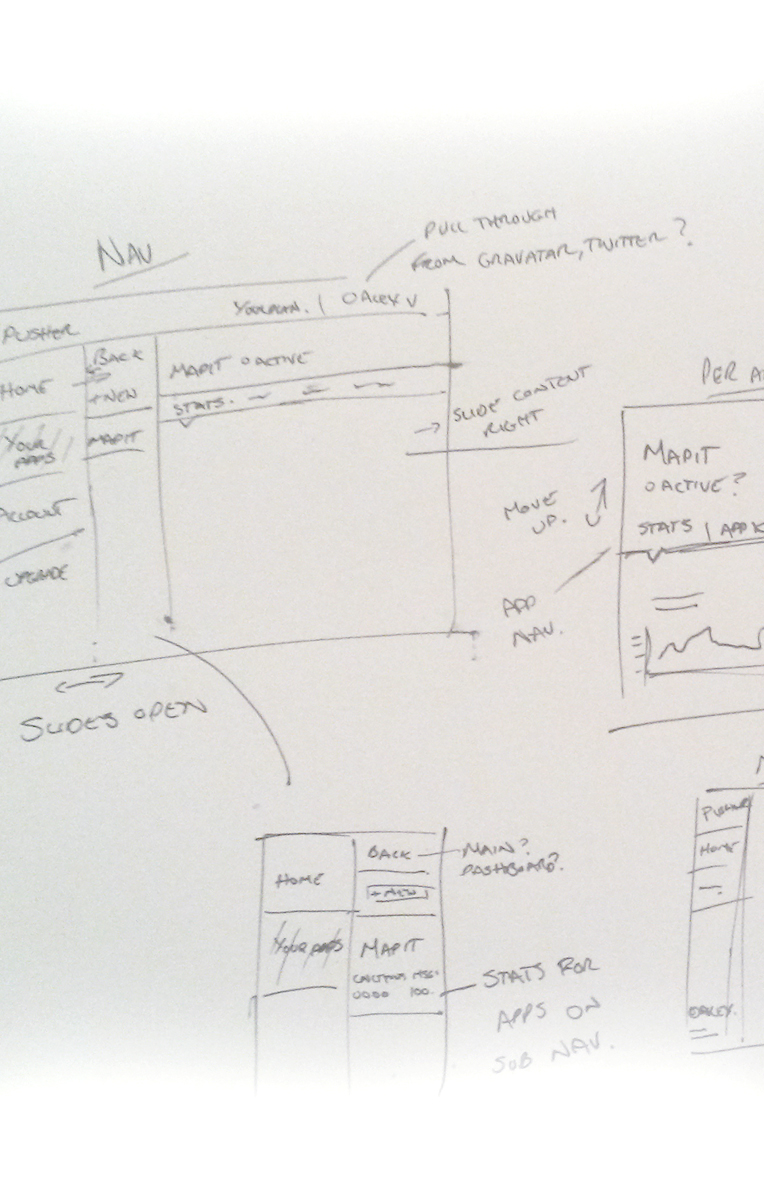 NAV
PULL THROUGH
FROM GRAVATAR, TWITTER?
PUSHER
| O ALEX V
HOME
YOUR
APPS
ACCOUNT
UPGRADE
BACK
+ NEW
MAPIT
MAPIT O ACTIVE
STATS.
→ SLIDE CONTENT
RIGHT
SLIDES OPEN
PER A
MAPIT
O ACTIVE?
STATS | APP K
MOVE
UP.
APP
NAV.
HOME
YOUR APPS
BACK
+ NEW
MAPIT
0000 100.
MAIN?
DASHBOARD?
STATS FOR
APPS ON
SUB NAV.
PUSHER
HOME